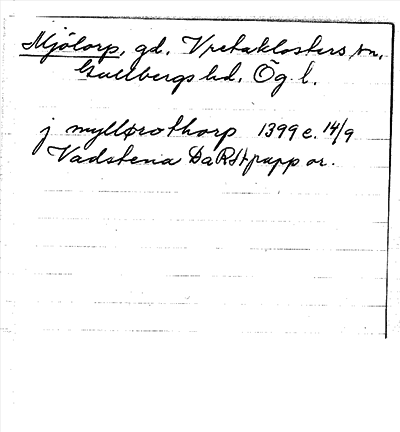 Mjölorp, gd. Vretaklosters sn,
Gullbergs hd. Ög. l.
j myllørothorp 1399 e. 14/9
Vadstena DaRA papp or.